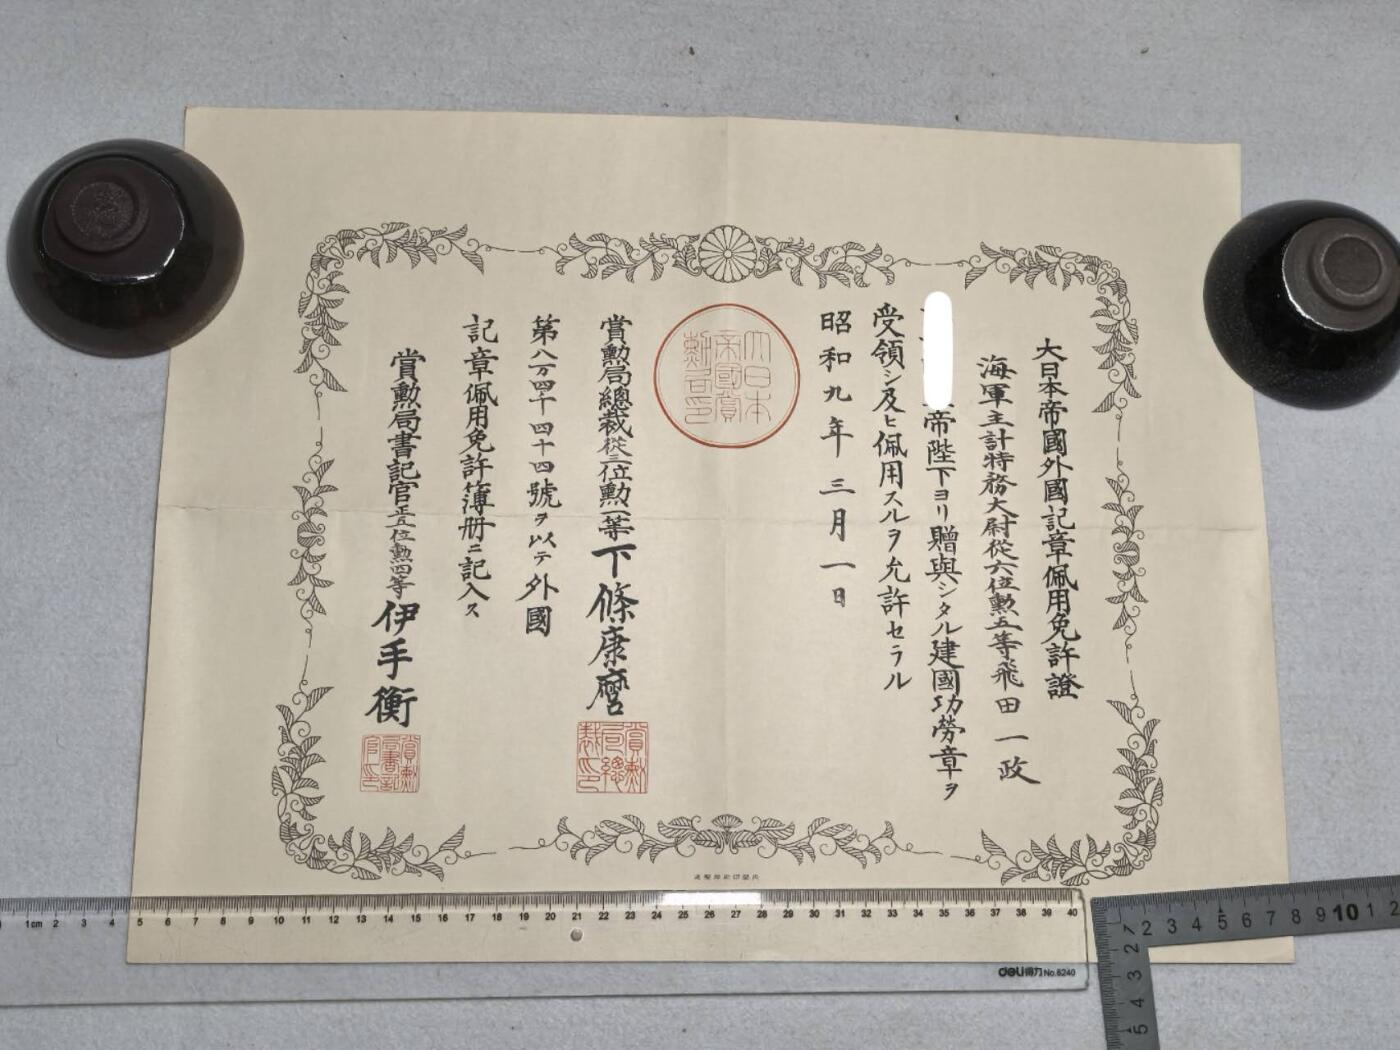 大日本帝國外國記章佩用免許證
海軍主計特務大尉從六位勲五等飛田一政
帝陛下ヨリ贈與シタル建國功勞章ヲ
受領シ及ヒ佩用スルヲ允許セラル
昭和九年三月一日
大日本
帝國賞
勲局印
賞勲局總裁從三位勲一等下條康麿
賞勲
局總
裁印
第八万四千四十四號ヲ以テ外國
記章佩用免許簿册ニ記入ス
賞勲局書記官正五位勲四等伊手衡
賞勲
局書記
官印
内閣印刷局製造
1cm 2 3 4 5 6 7 8 9 10 11 12 13 14 15 16 17 18 19 20 21 22 23 24 25 26 27 28 29 30 31 32 33 34 35 36 37 38 39 40
deli得力 No.6240
2 3 4 5 6 7 8 9 10 1 2
2 3 4 5